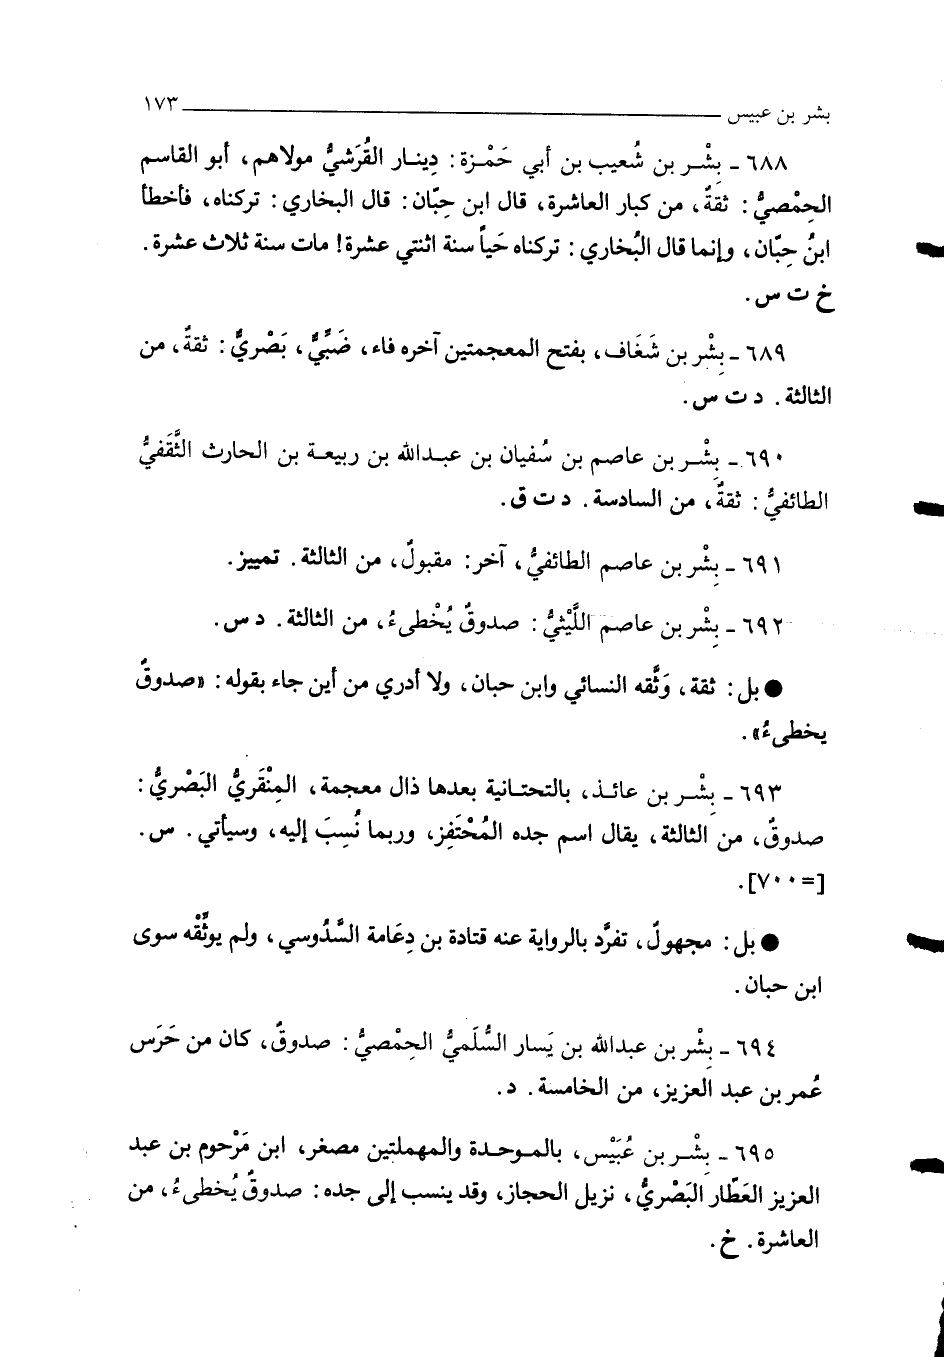 بشر بن عبيس ١٧٣
٦٨٨ ـ بِشْر بن شُعيب بن أبي حَمْزة: دِينار القُرَشيُّ مولاهم، أبو القاسم
الحِمْصيُّ: ثقةٌ، من كبار العاشرة، قال ابن حِبّان: قال البخاري: تركناه، فأخطأ
ابنُ حِبّان، وإنما قال البُخاري: تركناه حَياً سنة اثنتي عشرة! مات سنة ثلاث عشرة.
خ ت س.
٦٨٩ ـ بِشْر بن شَغَاف، بفتح المعجمتين آخره فاء، ضَبِّيٌّ، بَصْريٌّ: ثقةٌ، من
الثالثة. د ت س.
٦٩٠ ـ بِشْر بن عاصم بن سُفيان بن عبدالله بن ربيعة بن الحارث الثَّقَفيُّ
الطائفيُّ: ثقةٌ، من السادسة. د ت ق.
٦٩١ ـ بِشْر بن عاصم الطائفيُّ، آخر: مقبولٌ، من الثالثة. تمييز.
٦٩٢ ـ بِشْر بن عاصم اللَّيْثيُّ: صدوقٌ يُخْطىءُ، من الثالثة. د س.
● بل: ثقة، وَثَّقه النسائي وابن حبان، ولا أدري من أين جاء بقوله: «صدوقٌ
يخطىءُ».
٦٩٣ ـ بِشْر بن عائذ، بالتحتانية بعدها ذال معجمة، المِنْقَريُّ البَصْريُّ:
صدوقٌ، من الثالثة، يقال اسم جده المُحْتَفِز، وربما نُسِبَ إليه، وسيأتي. س.
[=٧٠٠].
● بل: مجهولٌ، تفرَّد بالرواية عنه قتادة بن دِعَامة السَّدُوسي، ولم يوثِّقْه سوى
ابن حبان.
٦٩٤ ـ بِشْر بن عبدالله بن يَسار السُّلَميُّ الحِمْصيُّ: صدوقٌ، كان من حَرَس
عُمر بن عبد العزيز، من الخامسة. د.
٦٩٥ ـ بِشْر بن عُبَيْس، بالموحدة والمهملتين مصغر، ابن مَرْحوم بن عبد
العزيز العَطّار البَصْريُّ، نزيل الحجاز، وقد ينسب إلى جده: صدوقٌ يُخطىءُ، من
العاشرة. خ.